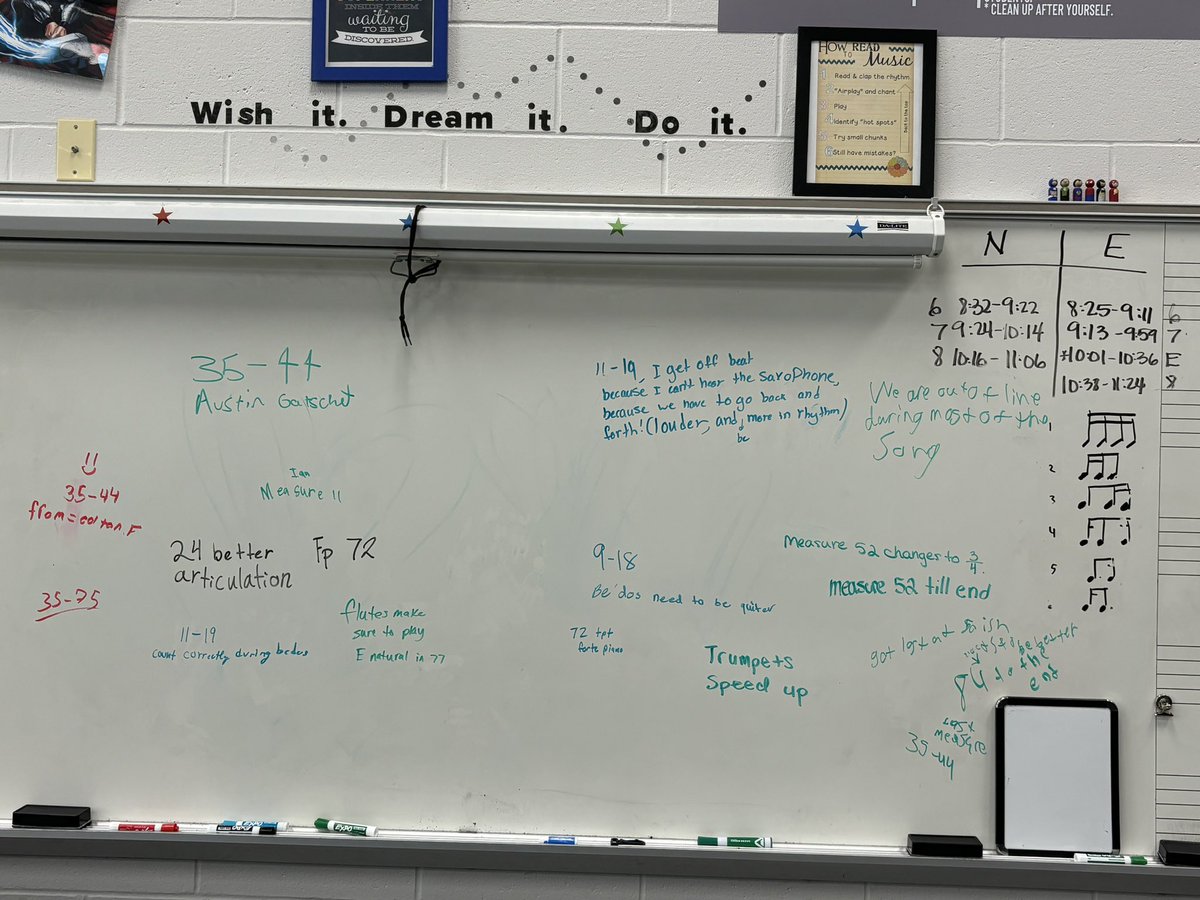 INSIDE THEM
waiting
TO BE
DISCOVERED.
STUDENTS.
* CLEAN UP AFTER YOURSELF.
Wish it. Dream it. Do it.
HOW TO READ
Music
1 Read & clap the rhythm
2 "Airplay" and chant
3 Play
4 Identify "hot spots"
5 Try small chunks
6 Still have mistakes?
Back to the top
DA-LITE
N E
6 8:32-9:22 8:25-9:11 6
7 9:24-10:14 9:13-9:59 7
8 10:16-11:06 *10:01-10:36 E
10:38-11:24 8
35-44
Austin
11-19, I get off beat
because I can't hear the saxoPhone,
because we have to go back and
forth! (louder, and be more in rhythm)
We are out of line
during most of the
Song
1
2
3
4
5
35-44
from = coltan.F
Ian
Measure 11
24 better
articulation
Fp 72
35-75
11-19
count correctly during bedos
flutes make
sure to play
E natural in 77
9-18
Be'dos need to be quiter
72 tpt
forte piano
measure 52 changes to 3/4.
measure 52 till end
Trumpets
Speed up
got lost at
be better
84 to the
end
measure
35-44
EXPO